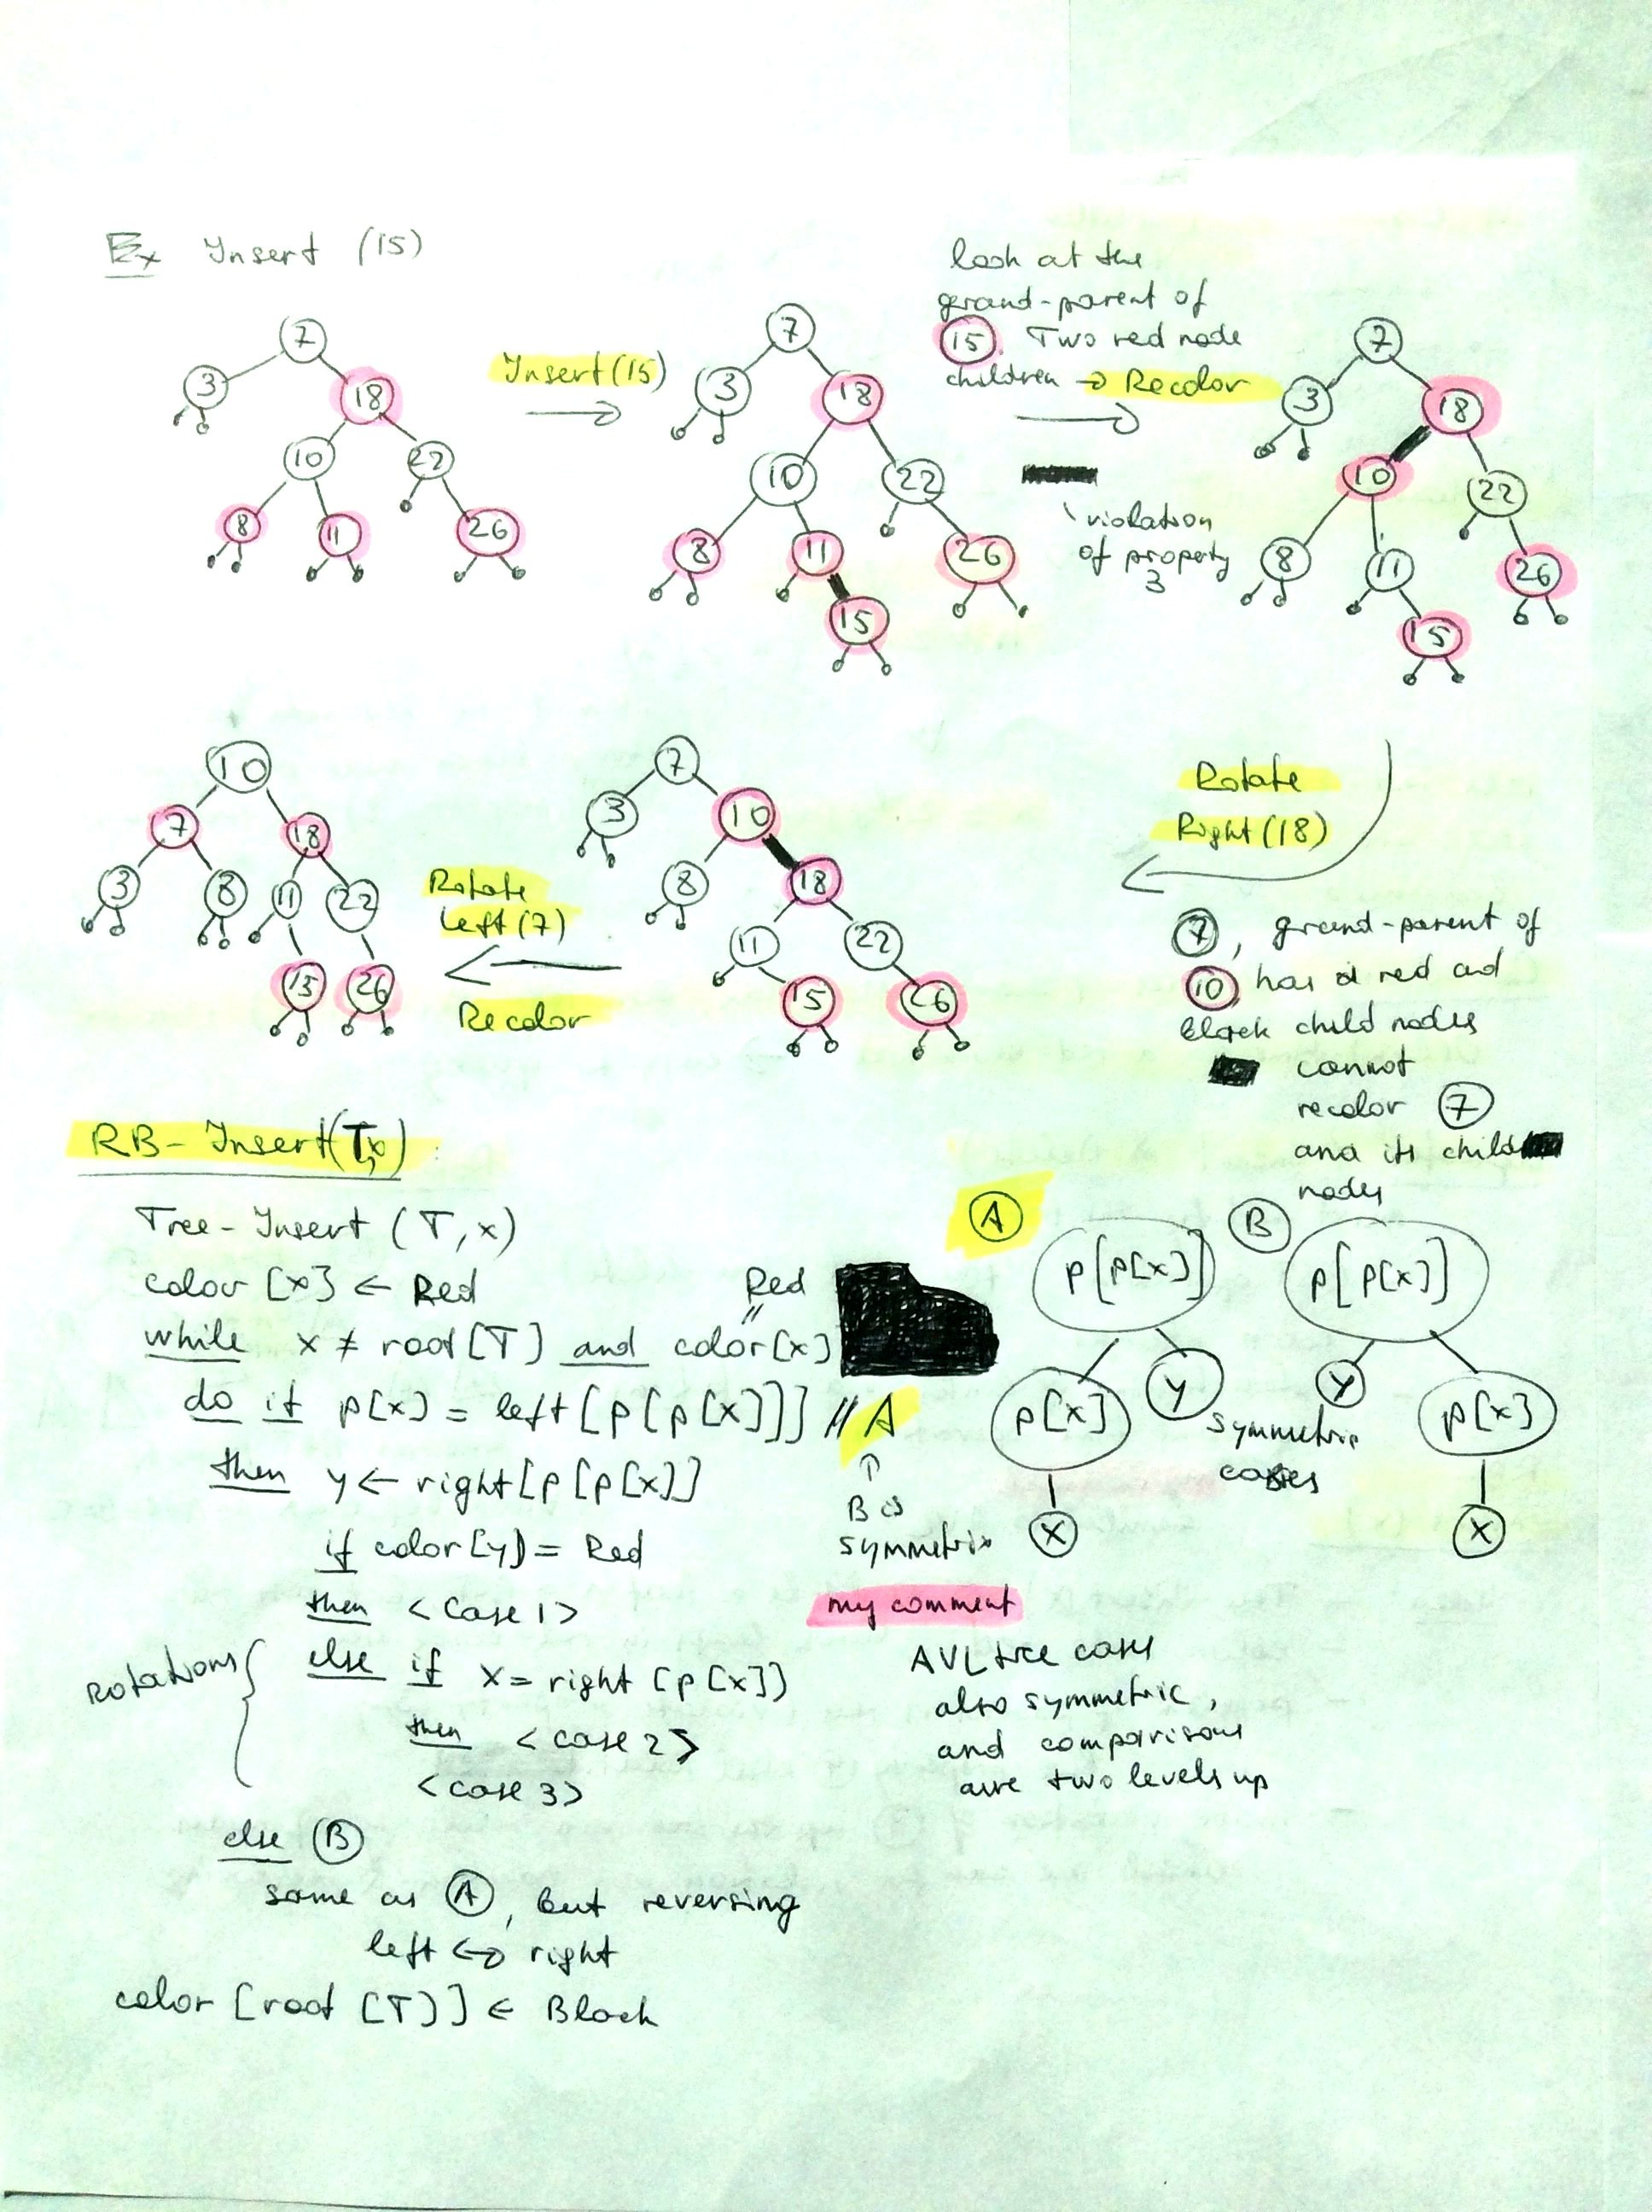 Ex Insert (15)
7
3 18
10 22
8 11 26
Insert(15)
7
3 18
10 22
8 11 26
15
look at the
grand-parent of
15. Two red node
children → Recolor
violation
of property
3
7
3 18
10 22
8 11 26
15
Rotate
Right(18)
7, grand-parent of
10 has a red and
black child nodes
cannot
recolor 7
and its child
nodes
7
3 10
8 18
11 22
15 26
Rotate
left(7)
Recolor
10
7 18
3 8 11 22
15 26
RB-Insert(T,x):
Tree-Insert (T,x)
color [x] ← Red
Red
"
while x ≠ root[T] and color[x]
do if p[x] = left[p[p[x]]] // A
then y ← right[p[p[x]]
if color[y] = Red
then <case 1>
else if x = right [p[x]]
then <case 2>
<case 3>
rotations
else B
same as A, but reversing
left ↔ right
color [root [T]] ← Black
↑
B is
symmetric
A
p[p[x]]
p[x] y
x
B
p[p[x]]
y p[x]
x
symmetric
cases
my comment
AVL tree cases
also symmetric,
and comparisons
are two levels up